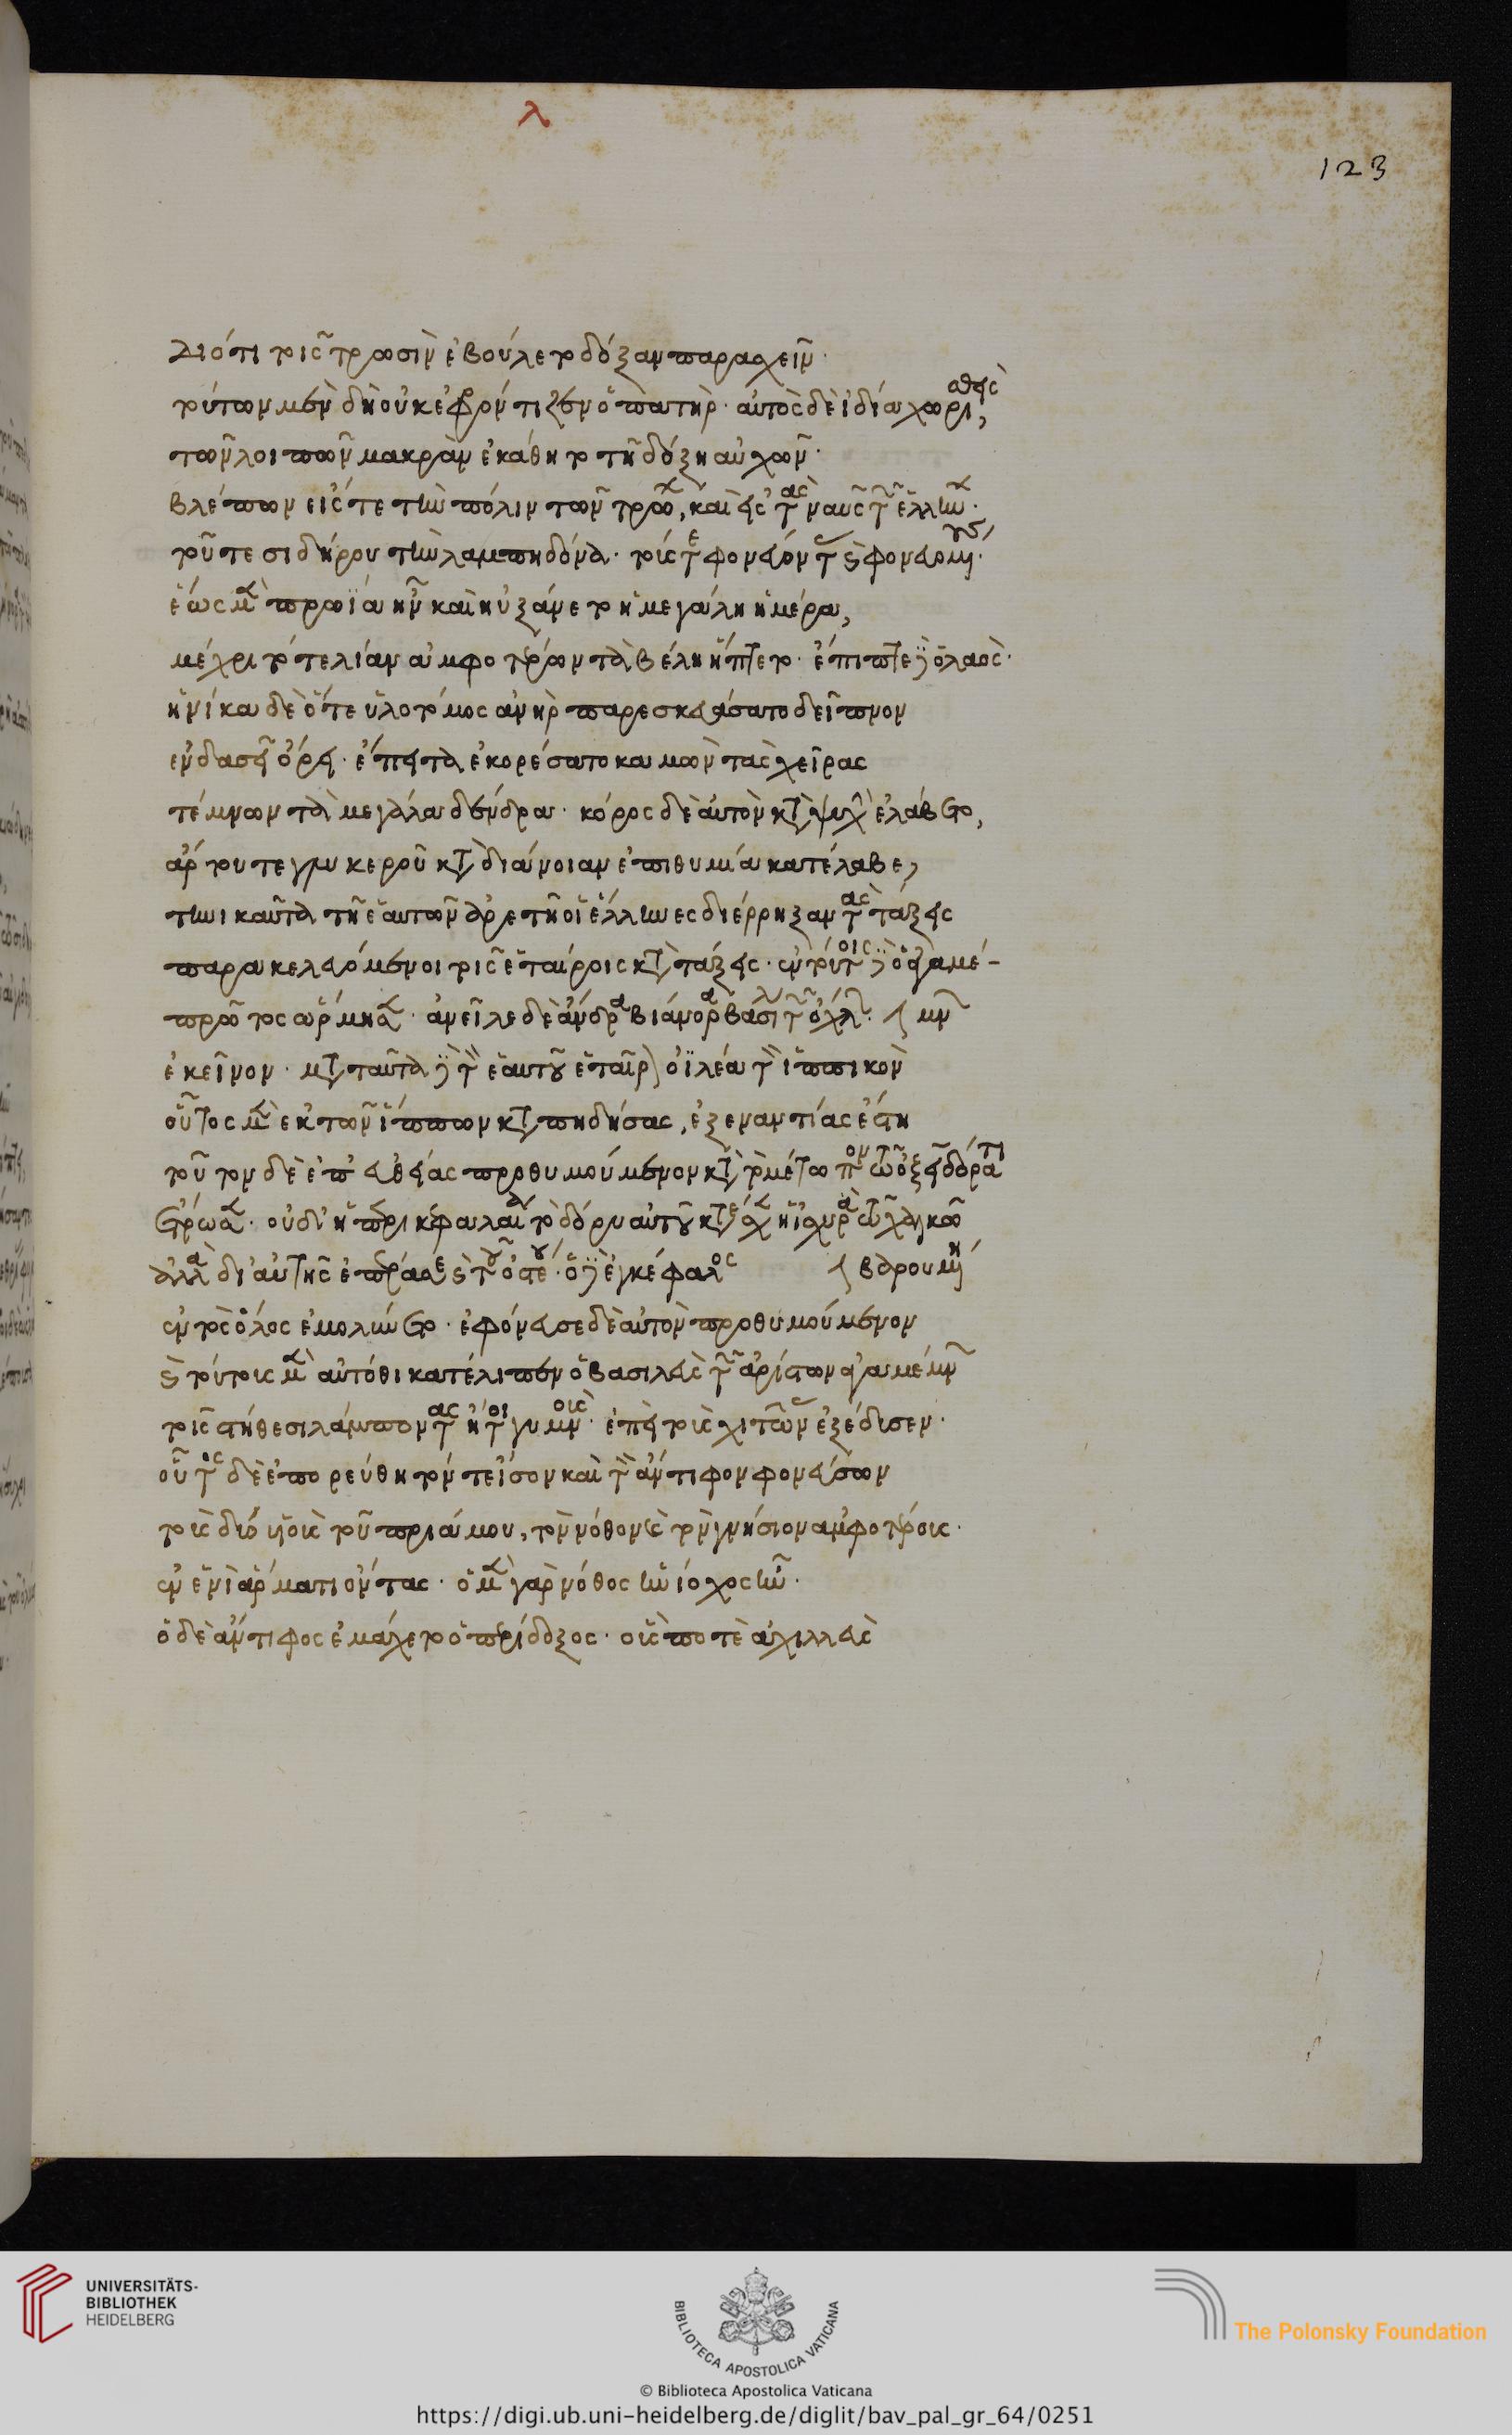 λ
123
Διότι τοῖς τρωσὶν ἐβούλετο δόξαν παρασχεῖν·
τούτων μὲν δὴ οὐκ ἐφρόντιζεν ὁ πατήρ· αὐτὸς δὲ ἰδία χωρισθεὶς,
τῶν λοιπῶν μακρὰν ἐκάθητο τῆ δόξη αὐχῶν·
βλέπων εἴς τε τὴν πόλιν τῶν τρώων, καὶ εἰς τὰς ναῦς τῶν ἑλλήνων·
τοῦ τε σιδήρου τὴν λαμπηδόνα· τούς τε φονεύοντας καὶ φονευομένους·
ἕως μὲν πρωΐα ἦν καὶ ηὐξάνετο ἡ μεγάλη ἡμέρα,
μέχρι τότε λίαν ἀμφοτέρων τὰ βέλη ἥπτετο· ἔπιπτε δὲ ὁ λαός·
ἡνίκα δὲ ὅτε ὑλοτόμος ἀνὴρ παρεσκευάσατο δεῖπνον
ἐν δασεῖ ὄρει· ἔπειτα ἐκορέσατο καμὼν τὰς χεῖρας
τέμνων τὰ μεγάλα δένδρα· κόρος δὲ αὐτὸν κατὰ ψυχὴν ἐλάβετο,
ἄρτου τε γλυκεροῦ κατὰ διάνοιαν ἐπιθυμία κατέλαβε,
τηνικαῦτα τῆ ἑαυτῶν ἀρετῆ οἱ ἕλληνες διέρρηξαν τὰς τάξεις
παρακελευόμενοι τοῖς ἑταίροις κατὰ τάξεις· ἐν τούτοις δὲ ὁ ἀγαμέ-
πρῶτος ὥρμησεν· ἀνεῖλε δὲ ἄνδρα βιάνορα βασιλέα τῶν ὄχλων· μνων
ἐκεῖνον· μετὰ ταῦτα δὲ τὸν ἑαυτοῦ ἑταῖρον ὀϊλέα τὸν ἱππικὸν
οὗτος μὲν ἐκ τῶν ἵππων καταπηδήσας, ἐξεναντίας ἔστη
τοῦτον δὲ ἐπ' εὐθείας προθυμούμενον κατὰ τὸ μέτωπον τῶ ὀξεῖ δόρατι
ἔτρωσεν· οὐδ' ἡ περικεφαλαία τὸ δόρυ αὐτοῦ κατέσχεν ἡ ἰσχυρὰ τῶ χαλκῶ
ἀλλὰ δι' αὐτῆς ἐπέρασε καὶ τοῦ ὀστέου· ὁ δὲ ἐγκέφαλος βαρουμένη
ἐντὸς ὅλος ἐμολύνετο· ἐφόνευσε δὲ αὐτὸν προθυμούμενον
καὶ τούτους μὲν αὐτόθι κατέλιπεν ὁ βασιλεὺς τῶν ἀρίστων ἀγαμέμνων
τοῖς στήθεσι λάμποντας ἤτοι γυμνοὺς· ἐπεὶ τοὺς χιτῶνας ἐξέδυσεν·
οὗτος δὲ ἐπορεύθη τόν τε ἶσον καὶ τὸν ἄντιφον φονεύσων
τοὺς δύο υἱοὺς τοῦ πριάμου, τὸν νόθον καὶ τὸν γνήσιον ἀμφοτέρους·
ἐν ἑνὶ ἅρματι ὄντας· ὁ μὲν γὰρ νόθος ἡνίοχος ἦν·
ὁ δὲ ἄντιφος ἐμάχετο ὁ περίδοξος· οὓς ποτὲ ἀχιλλεὺς
UNIVERSITÄTS-
BIBLIOTHEK
HEIDELBERG
BIBLIOTECA APOSTOLICA VATICANA
The Polonsky Foundation
© Biblioteca Apostolica Vaticana
https://digi.ub.uni-heidelberg.de/diglit/bav_pal_gr_64/0251